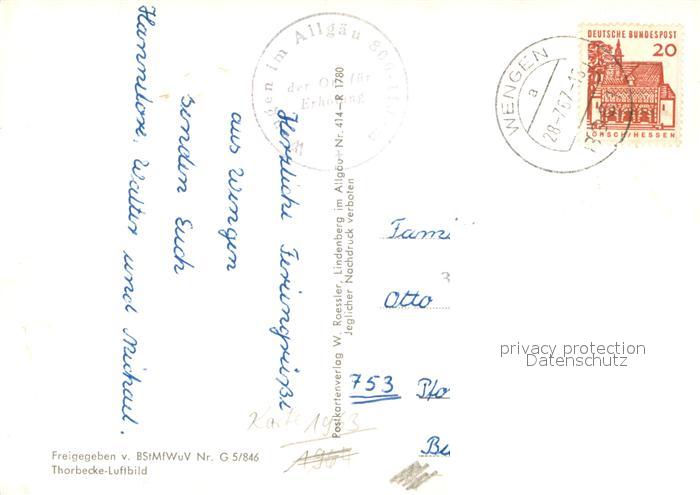 Herzliche Feriengrüße
aus Wengen
senden Euch
Hannelore, Walter und Michael.
Wengen im Allgäu 800-
der Ort für
Erholung
WENGEN
a
28-7.67-16
DEUTSCHE BUNDESPOST
20
LORSCH/HESSEN
Postkartenverlag W. Roessler, Lindenberg im Allgäu Nr. 414-R 1780
Jeglicher Nachdruck verboten
Fami
Otto
753 Pfo
privacy protection
Datenschutz
Karte 1963
1964
Freigegeben v. BStMfWuV Nr. G 5/846
Thorbecke-Luftbild